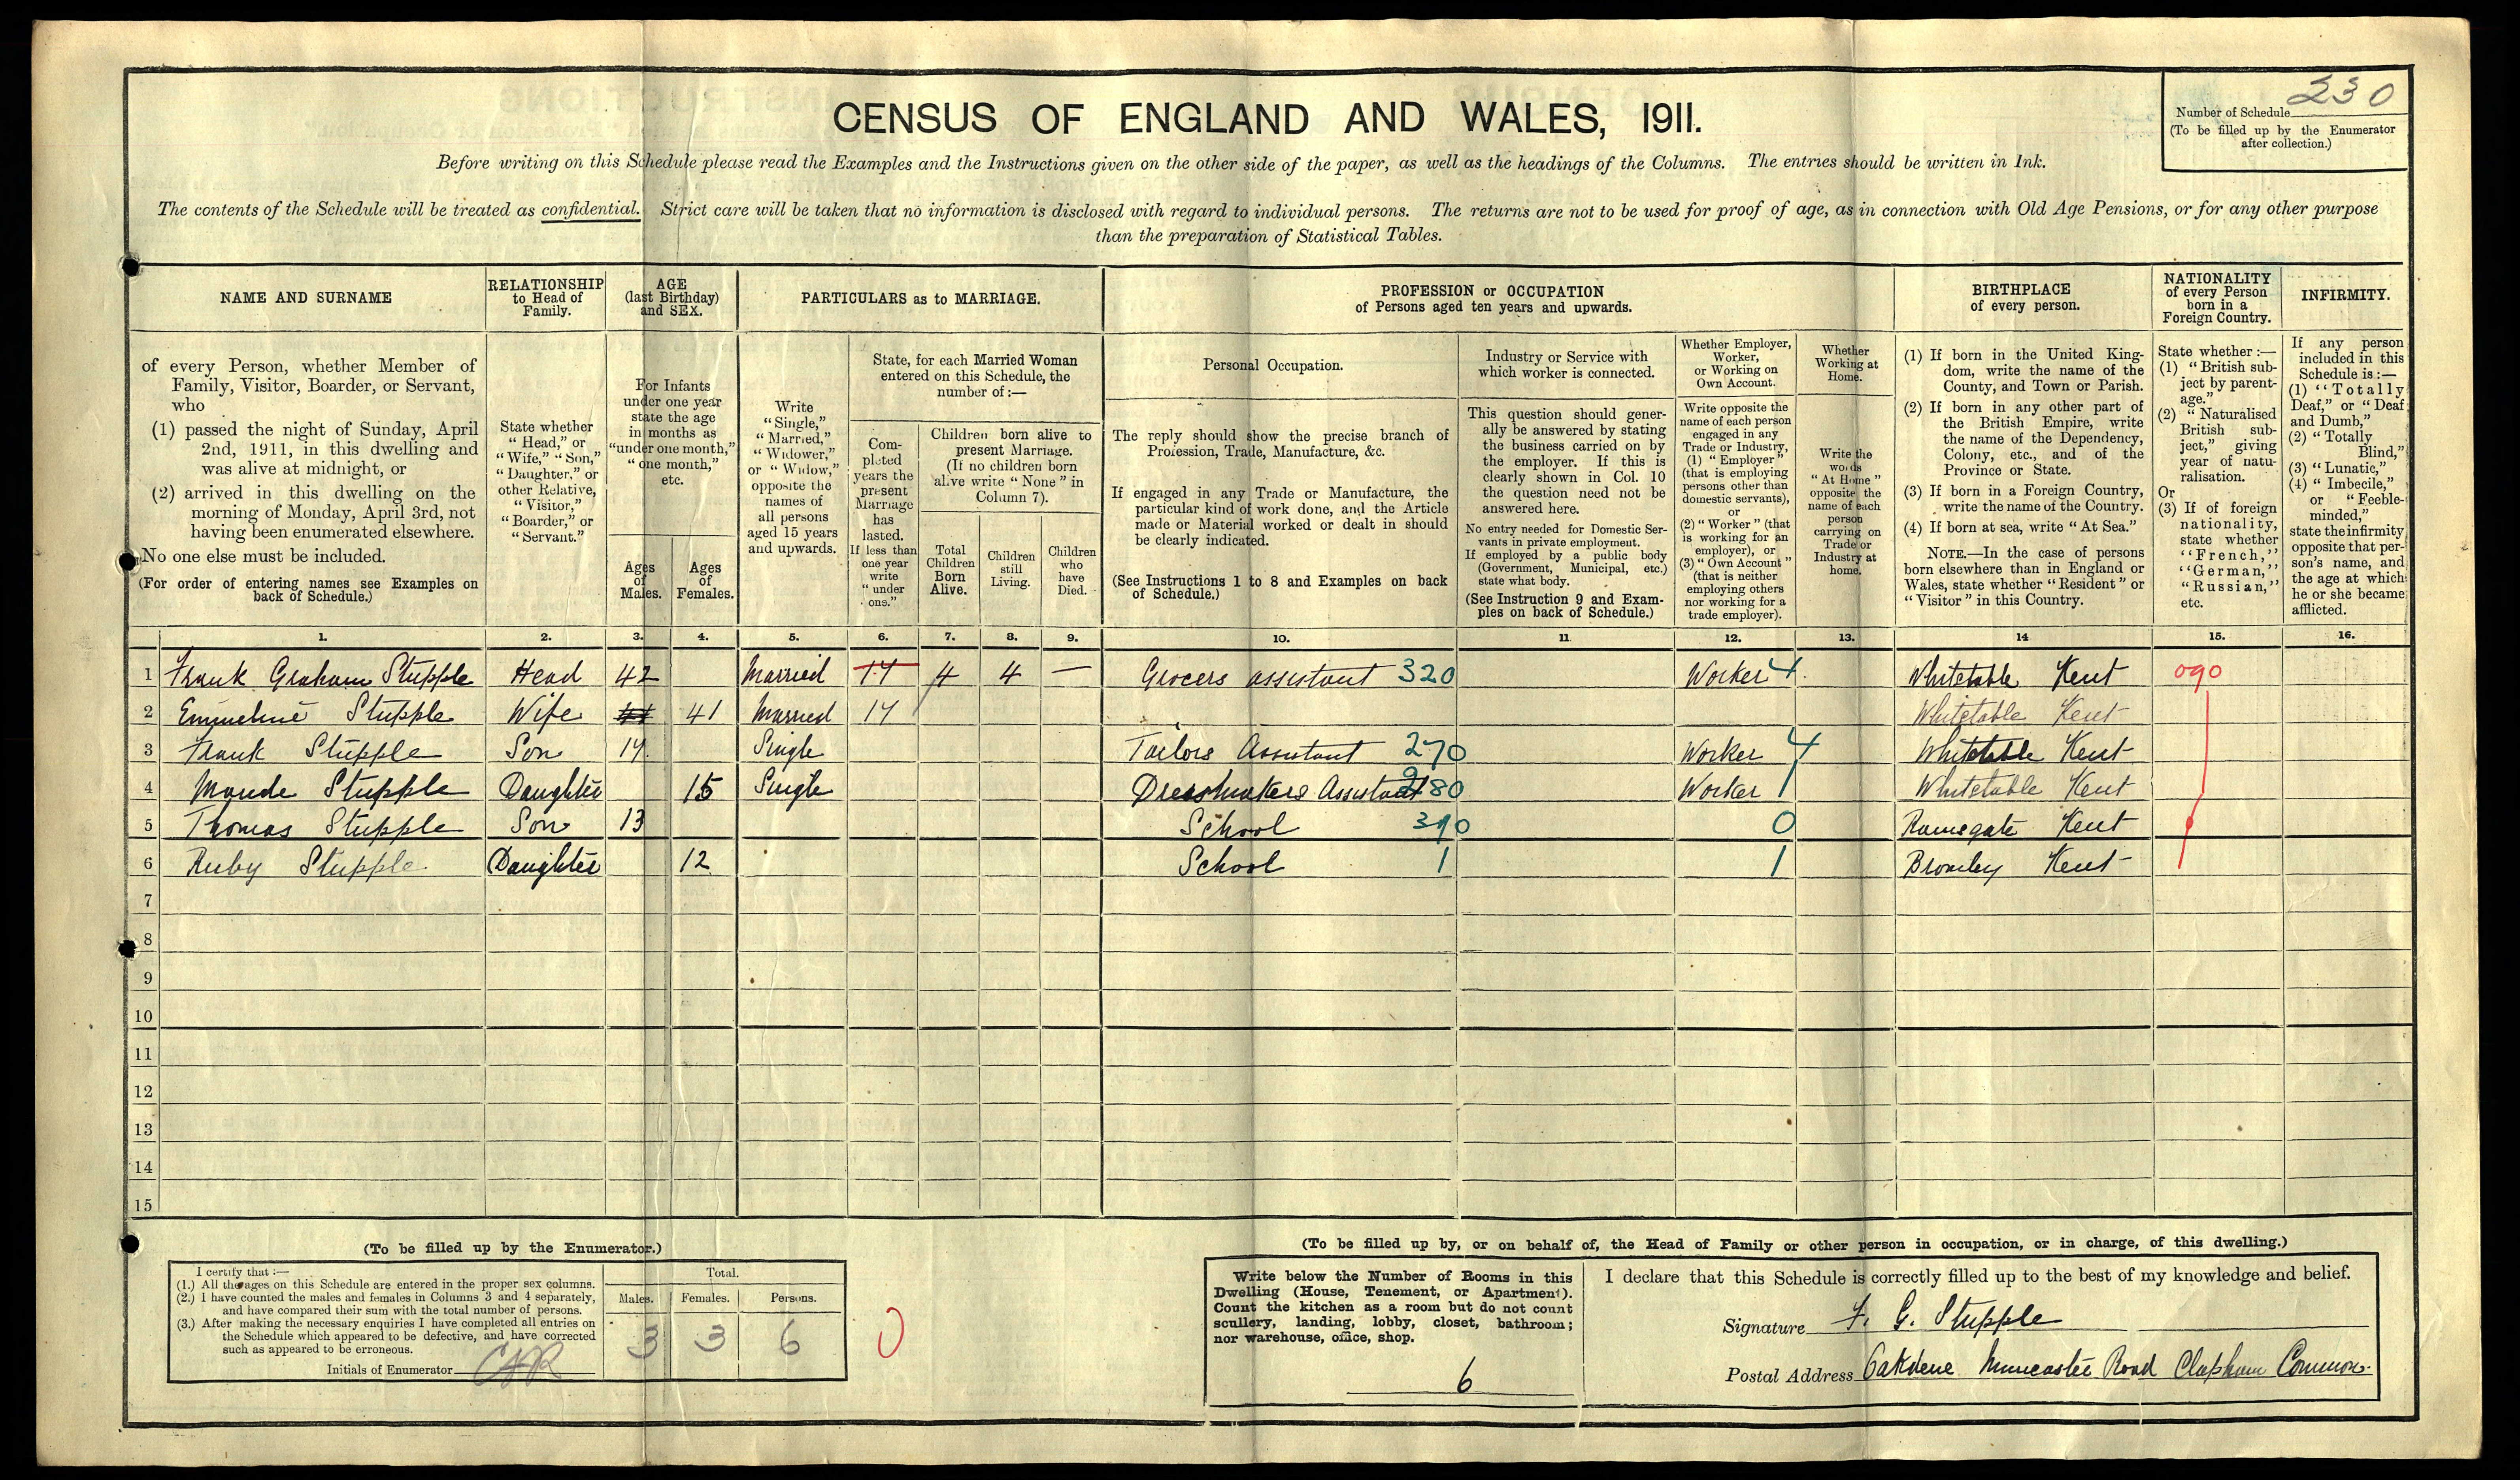 Number of Schedule 230
(To be filled up by the Enumerator
after collection.)
CENSUS OF ENGLAND AND WALES, 1911.
Before writing on this Schedule please read the Examples and the Instructions given on the other side of the paper, as well as the headings of the Columns. The entries should be written in Ink.
The contents of the Schedule will be treated as confidential. Strict care will be taken that no information is disclosed with regard to individual persons. The returns are not to be used for proof of age, as in connection with Old Age Pensions, or for any other purpose
than the preparation of Statistical Tables.
NAME AND SURNAME
RELATIONSHIP
to Head of
Family.
AGE
(last Birthday)
and SEX.
PARTICULARS as to MARRIAGE.
PROFESSION or OCCUPATION
of Persons aged ten years and upwards.
BIRTHPLACE
of every person.
NATIONALITY
of every Person
born in a
Foreign Country.
INFIRMITY.
of every Person, whether Member of
Family, Visitor, Boarder, or Servant,
who
(1) passed the night of Sunday, April
2nd, 1911, in this dwelling and
was alive at midnight, or
(2) arrived in this dwelling on the
morning of Monday, April 3rd, not
having been enumerated elsewhere.
No one else must be included.
(For order of entering names see Examples on
back of Schedule.)
State whether
"Head," or
"Wife," "Son,"
"Daughter," or
other Relative,
"Visitor,"
"Boarder," or
"Servant."
For Infants
under one year
state the age
in months as
"under one month,"
"one month,"
etc.
Ages
of
Males.
Ages
of
Females.
Write
"Single,"
"Married,"
"Widower,"
or "Widow,"
opposite the
names of
all persons
aged 15 years
and upwards.
State, for each Married Woman
entered on this Schedule, the
number of:—
Com-
pleted
years the
present
Marriage
has
lasted.
If less than
one year
write
"under
one."
Children born alive to
present Marriage.
(If no children born
alive write "None" in
Column 7).
Total
Children
Born
Alive.
Children
still
Living.
Children
who
have
Died.
Personal Occupation.
The reply should show the precise branch of
Profession, Trade, Manufacture, &c.
If engaged in any Trade or Manufacture, the
particular kind of work done, and the Article
made or Material worked or dealt in should
be clearly indicated.
(See Instructions 1 to 8 and Examples on back
of Schedule.)
Industry or Service with
which worker is connected.
This question should gener-
ally be answered by stating
the business carried on by
the employer. If this is
clearly shown in Col. 10
the question need not be
answered here.
No entry needed for Domestic Ser-
vants in private employment.
If employed by a public body
(Government, Municipal, etc.)
state what body.
(See Instruction 9 and Exam-
ples on back of Schedule.)
Whether Employer,
Worker,
or Working on
Own Account.
Write opposite the
name of each person
engaged in any
Trade or Industry,
(1) "Employer"
(that is employing
persons other than
domestic servants),
or
(2) "Worker" (that
is working for an
employer), or
(3) "Own Account"
(that is neither
employing others
nor working for a
trade employer).
Whether
Working at
Home.
Write the
words
"At Home"
opposite the
name of each
person
carrying on
Trade or
Industry at
home.
(1) If born in the United King-
dom, write the name of the
County, and Town or Parish.
(2) If born in any other part of
the British Empire, write
the name of the Dependency,
Colony, etc., and of the
Province or State.
(3) If born in a Foreign Country,
write the name of the Country.
(4) If born at sea, write "At Sea."
NOTE.—In the case of persons
born elsewhere than in England or
Wales, state whether "Resident" or
"Visitor" in this Country.
State whether:—
(1) "British sub-
ject by parent-
age."
(2) "Naturalised
British sub-
ject," giving
year of natu-
ralisation.
Or
(3) If of foreign
nationality,
state whether
"French,"
"German,"
"Russian,"
etc.
If any person
included in this
Schedule is:—
(1) "Totally
Deaf," or "Deaf
and Dumb,"
(2) "Totally
Blind,"
(3) "Lunatic,"
(4) "Imbecile,"
or "Feeble-
minded,"
state the infirmity
opposite that per-
son's name, and
the age at which
he or she became
afflicted.
1. 2. 3. 4. 5. 6. 7. 8. 9. 10. 11 12. 13. 14 15. 16.
1 Frank Graham Stupple Head 42 Married 17 4 4 — Grocers assistant 320 Worker 4 Whitstable Kent 090
2 Emmeline Stupple Wife 41 Married 17 Whitstable Kent
3 Frank Stupple Son 17. Single Tailors Assistant 270 Worker 4 Whitstable Kent
4 Maude Stupple Daughter 15 Single Dressmakers Assistant 280 Worker 1 Whitstable Kent
5 Thomas Stupple Son 13 School 390 0 Ramsgate Kent
6 Ruby Stupple. Daughter 12 School 1 1 Bromley Kent
7
8
9
10
11
12
13
14
15
(To be filled up by the Enumerator.)
I certify that:—
(1.) All the ages on this Schedule are entered in the proper sex columns.
(2.) I have counted the males and females in Columns 3 and 4 separately,
and have compared their sum with the total number of persons.
(3.) After making the necessary enquiries I have completed all entries on
the Schedule which appeared to be defective, and have corrected
such as appeared to be erroneous.
Initials of Enumerator
Total.
Males. Females. Persons.
3 3 6
0
(To be filled up by, or on behalf of, the Head of Family or other person in occupation, or in charge, of this dwelling.)
Write below the Number of Rooms in this
Dwelling (House, Tenement, or Apartment).
Count the kitchen as a room but do not count
scullery, landing, lobby, closet, bathroom;
nor warehouse, office, shop.
6
I declare that this Schedule is correctly filled up to the best of my knowledge and belief.
Signature F. G. Stupple
Postal Address Oakdene Muncaster Road Clapham Common.